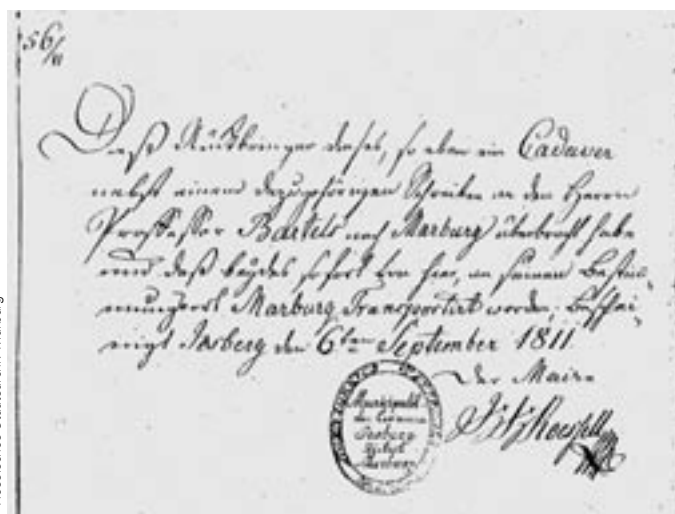 56/11
Daß Rückbringer dieses, so eben ein Cadaver
nebst einem dazugehörigen Schreiben an den Herrn
Professor Bartels nach Marburg überbracht habe
und daß beydes sofort von hier, an seinen Bestim-
mungsort Marburg Transportirt worden, beschei-
nigt Jesberg den 6ten September 1811
Der Maire